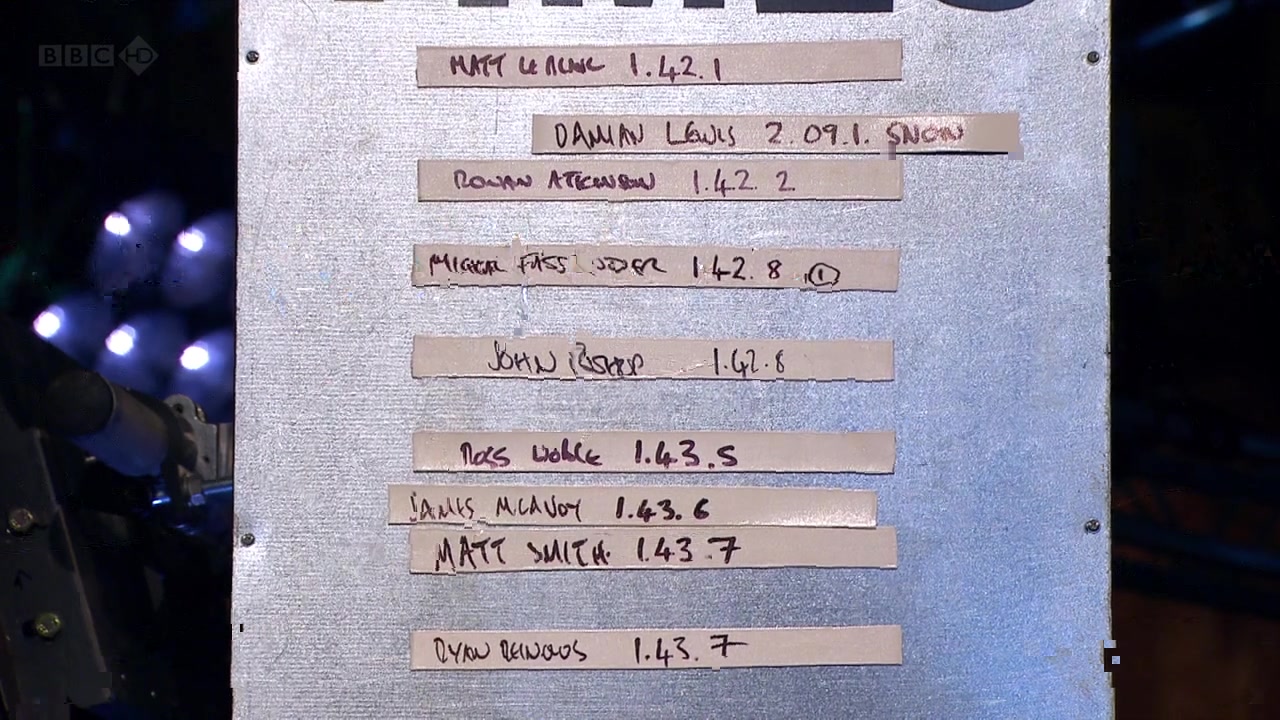 BBC HD
MATT LeBLANC 1.42.1
DAMIAN LEWIS 2.09.1. SNOW
ROWAN ATKINSON 1.42.2
MICHAEL FASSBENDER 1.42.8 ①
JOHN BISHOP 1.42.8
ROSS NOBLE 1.43.5
JAMES MCAVOY 1.43.6
MATT SMITH. 1.43.7
RYAN REYNOLDS 1.43.7